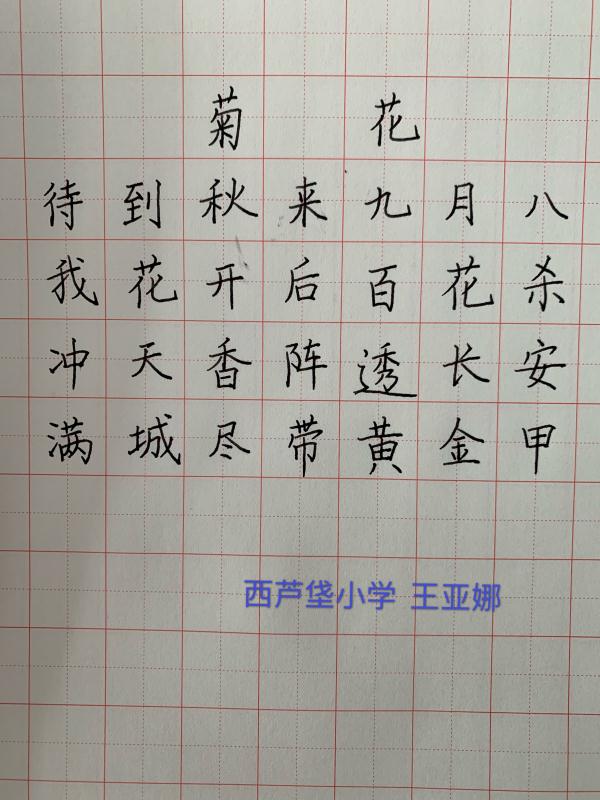 菊花
待到秋来九月八
我花开后百花杀
冲天香阵透长安
满城尽带黄金甲
西芦垡小学 王亚娜